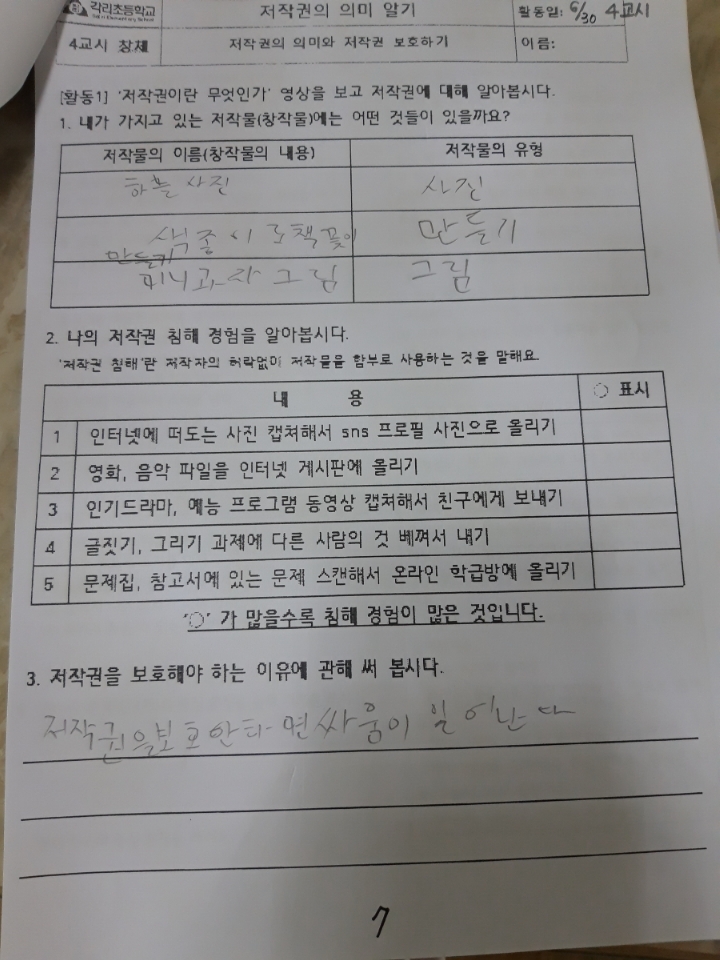 각리초등학교
저작권의 의미 알기
활동일: 6/30 4교시
4교시 창체
저작권의 의미와 저작권 보호하기
이름:
[활동1] '저작권이란 무엇인가' 영상을 보고 저작권에 대해 알아봅시다.
1. 내가 가지고 있는 저작물(창작물)에는 어떤 것들이 있을까요?
저작물의 이름(창작물의 내용) 저작물의 유형
하늘 사진 사진
색종이로책꽂이 만들기
만들기
미니과자 그림 그림
2. 나의 저작권 침해 경험을 알아봅시다.
'저작권 침해'란 저작자의 허락없이 저작물을 함부로 사용하는 것을 말해요.
내 용 ◌ 표시
1 인터넷에 떠도는 사진 캡쳐해서 sns 프로필 사진으로 올리기
2 영화, 음악 파일을 인터넷 게시판에 올리기
3 인기드라마, 예능 프로그램 동영상 캡쳐해서 친구에게 보내기
4 글짓기, 그리기 과제에 다른 사람의 것 베껴서 내기
5 문제집, 참고서에 있는 문제 스캔해서 온라인 학급방에 올리기
'◌' 가 많을수록 침해 경험이 많은 것입니다.
3. 저작권을 보호해야 하는 이유에 관해 써 봅시다.
저작권을보호안하면싸움이 일어난다
7